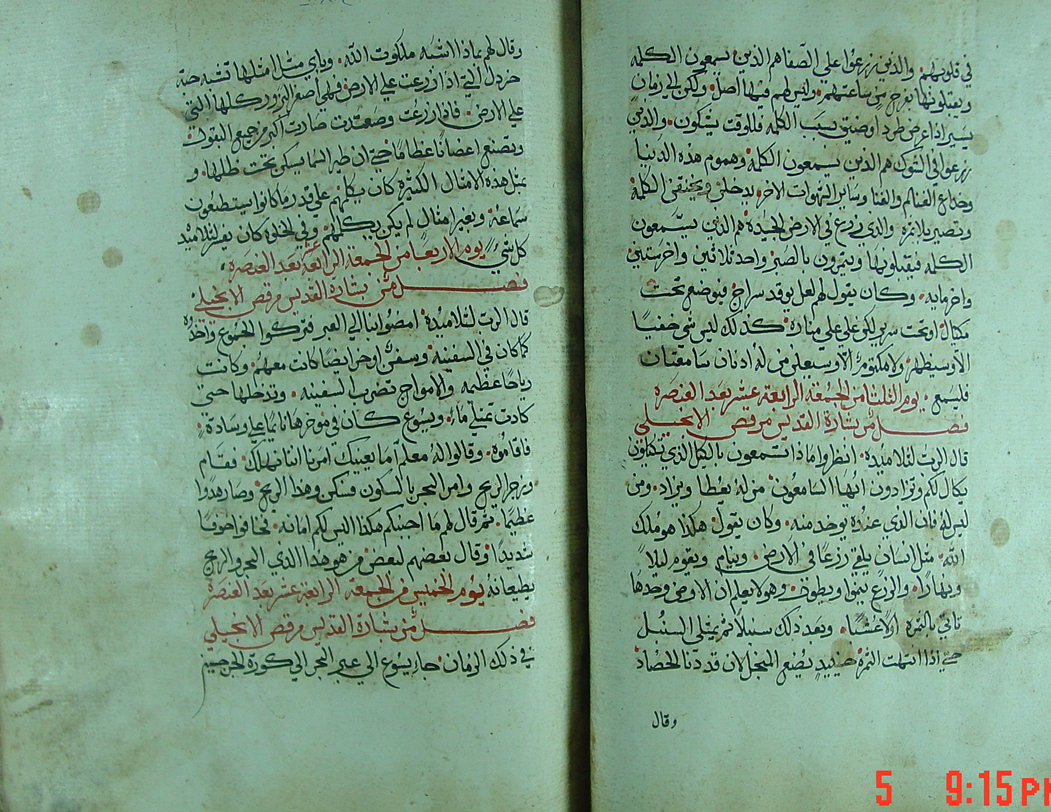 في قلوبهم. والذين زرعوا على الصفا هم الذين يسمعون الكلمه
ويقبلونها بفرح من ساعتهم. وليس لهم فيها اصل. ولكن الى زمان
يسير اذا عرض طرد او ضيق بسبب الكلمه فللوقت يشكون. والذين
زرعوا في الشوك هم الذين يسمعون الكلمه وهموم هذه الدنيا
وخداع الغنا وساير الشهوات الاخر يدخلن ويختنقن الكلمة
وتصير بلا ثمره. والذي زرع في الارض الجيدة هم الذين يستمعون
الكلمه فيقبلونها ويثمرون بالصبر واحد ثلاثين واخر ستين
واخر مايه. وكان يقول لهم لعل يوقد سراج فيوضع تحت
مكيال. او تحت سرير لكن على على منارة. كذلك ليس شي خفيا
الا وسيظهر ولا مكتوم الا وسيعلن من له اذنان سامعتان
فليسمع. يوم الثلثا من الجمعة الرابعة عشر بعد العنصره
فصل من بشارة القديس مرقص الانجيلي
قال الرب لتلاميذه. انظروا ماذا تسمعون بالكيل الذي تكتالون
يكال لكم وتزادون ايها السامعون. من له يعطا ويزاد. ومن
ليس له فان الذي عنده يوخد منه. وكان يقول. هكذا هو ملك
الله. مثل انسان يلقي زرعا في الارض. وينام ويقوم ليلا
ونهارا. والزرع ينمو ويطول. وهو لا يعلم ان الارض وحدها
تاتي بالثمره اولا عشبا. وبعد ذلك سنبلا ثم يمتلي السنبل
حتى اذا انتهت الثمرة حينيد يضع المنجل لان قد دنا الحصاد
وقال
وقال لهم بماذا اشبه ملكوت الله. وباي مثل امثلها تشبه حبة
خردل التي اذا زرعت على الارض فهي اصغر البزور كلها التي
على الارض. فاذا زرعت وصعدت صارت اكبر من جميع البقول
وتصنع اغصانا عظاما حتى ان طير السما يسكن تحت ظلها. و
بمثل هذه الامثال الكثيرة كان يكلمهم على قدر ما كانوا يستطيعون
سماعه. وبغير امثال لم يكن يكلمهم وفي الخلوة كان يفسر لتلاميذه
كل شي. يوم الاربعا من الجمعة الرابعة عشر بعد العنصره
فصل من بشارة القديس مرقص الانجيلي
قال الرب لتلاميذه. امضوا بنا الى العبر فتركوا الجموع واخذوه
كما كان في السفينه. وسفن اوخر ايضا كانت معهم. وكانت
رياحا عظيمه والامواج تضرب السفينه. وتدخلها حتى
كادت تمتلي ماء. ويسوع كان في موخرها نايما على وسادة
فاقاموه. وقالوا له معلم اما يعنيك امرنا اننا نهلك. فقام
وزجر الريح وامر البحر بالسكون فسكن وهدا الريح. وصار هدوا
عظيما. ثم قال لهم ما اجبنكم هكذا اليس لكم امانه. فخافوا خوفا
شديدا. وقال بعضهم لبعض من هو هذا الذي البحر والريح
يطيعانه يوم الخميس من الجمعة الرابعة عشر بعد العنصرة
فصل من بشارة القديس مرقص الانجيلي
في ذلك الزمان. جا يسوع الى عبر البحر الى كورة الجرجسيين
5 9:15 PM